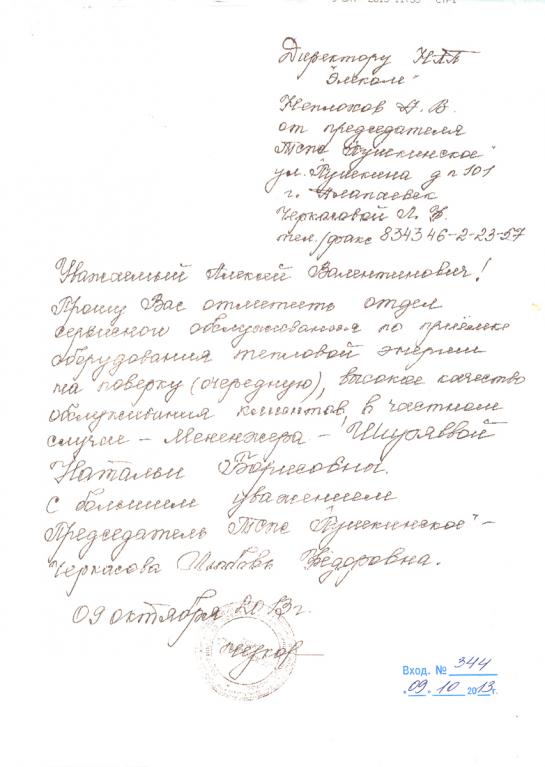 Директору НПП
"Элеком"
Неплохов А. В.
от председателя
ТСПС "Пушкинское"
ул. Пушкина д № 101
г. Алапаевск
Черкасовой Л. Ф.
тел./факс 834346-2-23-57
Уважаемый Алексей Валентинович!
Прошу Вас отметить отдел
сервисного обслуживания по приёмке
оборудования тепловой энергии
на поверку (очередную), высокое качество
обслуживания клиентов, в частном
случае - Мененжера - Ширяевой
Натальи Борисовны.
С большим уважением
Председатель ТСПС "Пушкинское" -
Черкасова Любовь Фёдоровна.
09 октября 2013г.
Вход. № 344
"09" 10 2013г.